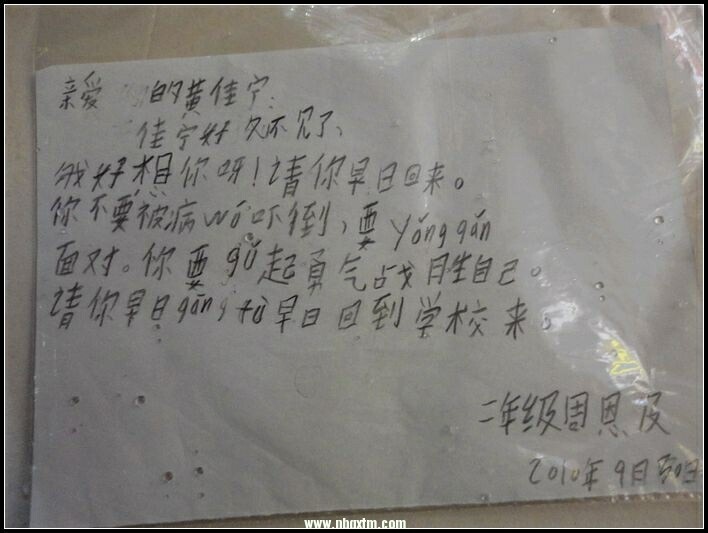 亲爱的黄佳宁:
佳宁好久不见了、
我好想你呀!请你早日回来。
你不要被病wó吓倒,要yǒng gǎn
面对。你要gǔ起勇气战胜自己。
请你早日gāng 早日回到学校来。
二年级周恩及
2010年9月30日
www.nbqxtm.com